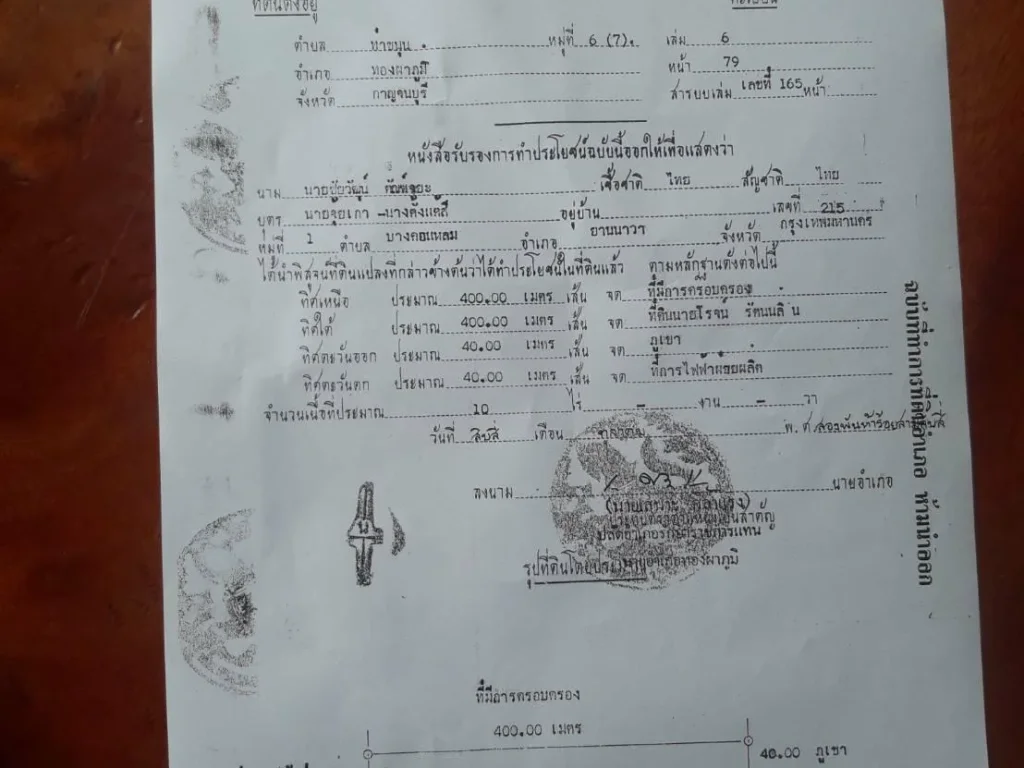 ที่ดินตั้งอยู่
ทะเบียน
ตำบล ท่าขนุน หมู่ที่ 6 (7). เล่ม 6
อำเภอ ทองผาภูมิ หน้า 79
จังหวัด กาญจนบุรี สารบบเล่ม เลขที่ 165 หน้า
หนังสือรับรองการทำประโยชน์ฉบับนี้ออกให้เพื่อแสดงว่า
นาม เชื้อชาติ ไทย สัญชาติ ไทย
บุตร อยู่บ้าน เลขที่ 215
หมู่ที่ 1 ตำบล บางคอแหลม อำเภอ ยานนาวา จังหวัด กรุงเทพมหานคร
ได้นำพิสูจน์ที่ดินแปลงที่กล่าวข้างต้นว่าได้ทำประโยชน์ในที่ดินแล้ว ตามหลักฐานดังต่อไปนี้
ทิศเหนือ ประมาณ 400.00 เมตร เส้น จด ที่มีการครอบครอง
ทิศใต้ ประมาณ 400.00 เมตร เส้น จด ที่ดินนายโรจน์ รัตนนลิน
ทิศตะวันออก ประมาณ 40.00 เมตร เส้น จด ภูเขา
ทิศตะวันตก ประมาณ 40.00 เมตร เส้น จด ที่การไฟฟ้าฝ่ายผลิต
จำนวนเนื้อที่ประมาณ 10 ไร่ - งาน - วา
วันที่ สิบสี่ เดือน ตุลาคม พ.ศ.
ลงนาม นายอำเภอ
ปลัดอำเภอ รักษาราชการแทน
นายอำเภอทองผาภูมิ
รูปที่ดินโดยประมาณ
ที่มีการครอบครอง
400.00 เมตร
40.00 ภูเขา
ห้ามนำออก